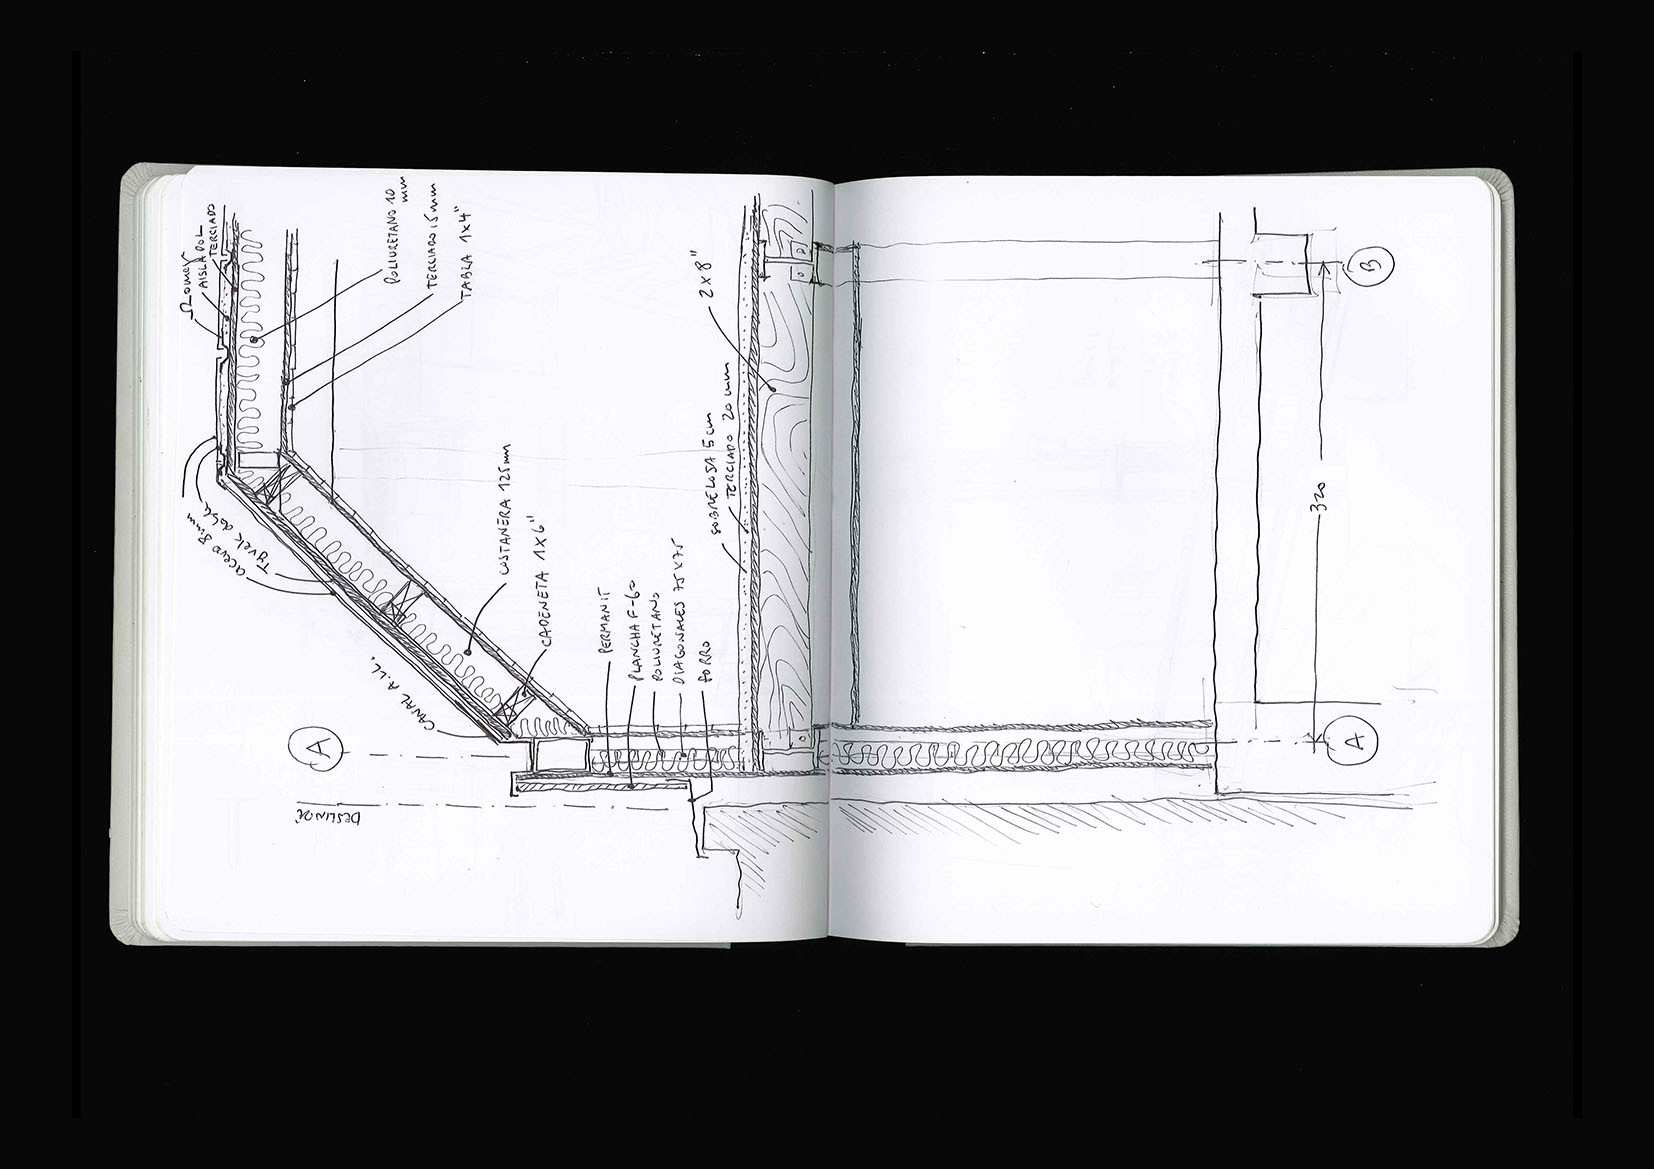 AISLAPOL
TERCIADO
POLIURETANO 10
mm
TERCIADO 15mm
TABLA 1x4"
acero 8mm
Tyvek doble
COSTANERA 125mm
CADENETA 1x6"
CANAL A.LL.
PERMANIT
PLANCHA F-60
POLIURETANO
DIAGONALES 75x75
FORRO
SOBRELOSA 5cm
TERCIADO 20mm
2x8"
A
DESLINDE
B
320
A